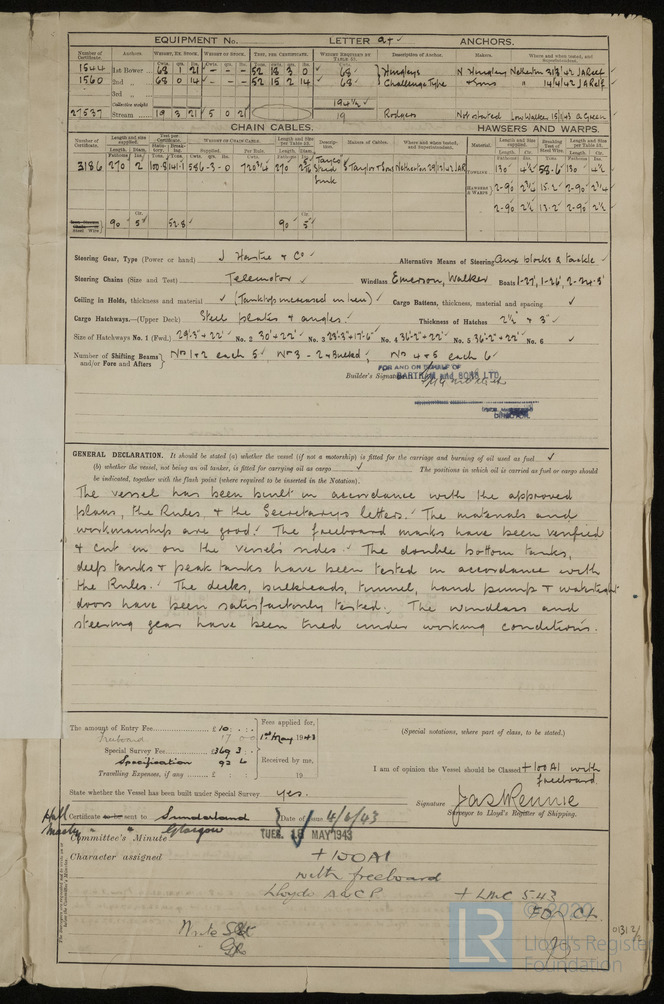 EQUIPMENT No. LETTER at ANCHORS.
Number of Certificate. Anchors. WEIGHT, EX. STOCK. WEIGHT OF STOCK. TEST, PER CERTIFICATE. WEIGHT REQUIRED BY TABLE 22. Description of Anchor. Makers. Where and when tested, and Superintendent.
1544 1st Bower 68 1 21 - - - 52 18 3 0 68 Hingleys N Hingley Netherton 31/3/42 JA Relf
1560 2nd 68 0 14 - - - 52 15 2 14 68 Challenge Type & Sons " 14/4/42 JA Relf
3rd
Collective weight 194½
27537 Stream 19 3 21 5 0 21 19 Rodgers Not stated Low Walker 15/1/43 A Green
CHAIN CABLES. HAWSERS AND WARPS.
3186 270 2 270 Tayco Stud Link S Taylor & Sons Netherton 29/12/42 JAR
TOWLINE 130 4½ 58·6 130 4½
HAWSERS & WARPS 2-90 2½ 15·2 2-90 2¼
" 2-90 2½ 13·2 2-90 2½
90 5 52·8 90 5
Steering Gear, Type (Power or hand) J Hastie & Co Alternative Means of Steering Aux blocks & tackle
Steering Chains (Size and Test) Telemotor Windlass Emerson, Walker Boats 1-27', 1-26', 2-24·5'
Ceiling in Holds, thickness and material (Tanktop measured in lieu) Cargo Battens, thickness, material and spacing
Cargo Hatchways.—(Upper Deck) Steel plates & angles. Thickness of Hatches 2½" & 3"
Size of Hatchways No. 1 (Fwd.) 29'·3"×22' No. 2 30'×22' No. 3 28'·3"×17'·6" No. 4 36'·2"×22' No. 5 36'·2"×22' No. 6
Number of Shifting Beams and/or Fore and Afters No 1 & 2 each 5, No 3 - 2 & Bulkhd, No 4 & 5 each 6
FOR AND ON BEHALF OF
Builder's Signature BARTRAM and SONS LTD.
GENERAL DECLARATION. It should be stated (a) whether the vessel (if not a motorship) is fitted for the carriage and burning of oil used as fuel
(b) whether the vessel, not being an oil tanker, is fitted for carrying oil as cargo The positions in which oil is carried as fuel or cargo should
be indicated, together with the flash point (where required to be inserted in the Notation).
The vessel has been built in accordance with the approved
plans, the Rules, & the Secretary's letters. The materials and
workmanship are good. The freeboard marks have been verified
& cut in on the vessel's sides. The double bottom tanks,
deep tanks & peak tanks have been tested in accordance with
the Rules. The decks, bulkheads, tunnel, hand pump & watertight
doors have been satisfactorily tested. The windlass and
steering gear have been tried under working conditions.
The amount of Entry Fee £ 10 Fees applied for,
Freeboard 1st May 1943 (Special notations, where part of class, to be stated.)
Special Survey Fee £ 369 3
Specification 92 6 Received by me, I am of opinion the Vessel should be Classed +100A1 with freeboard
Travelling Expenses, if any £ 19
State whether the Vessel has been built under Special Survey Yes.
Signature Jas Rennie
Surveyor to Lloyd's Register of Shipping.
Hull Certificate to be sent to Sunderland Date of issue 4/6/43
Machy " " Glasgow
Committee's Minute TUES. 18 MAY 1943
Character assigned +100A1
with freeboard
Lloyds A & CP. + LMC 5.43
FD CL
© 2020
LR Lloyd's Register Foundation